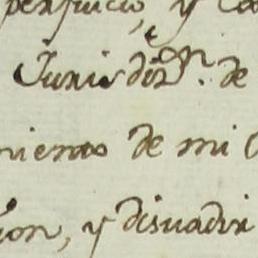 perjuicio, y
Jurisdizn. de
miento de mi
ion, y disuadir